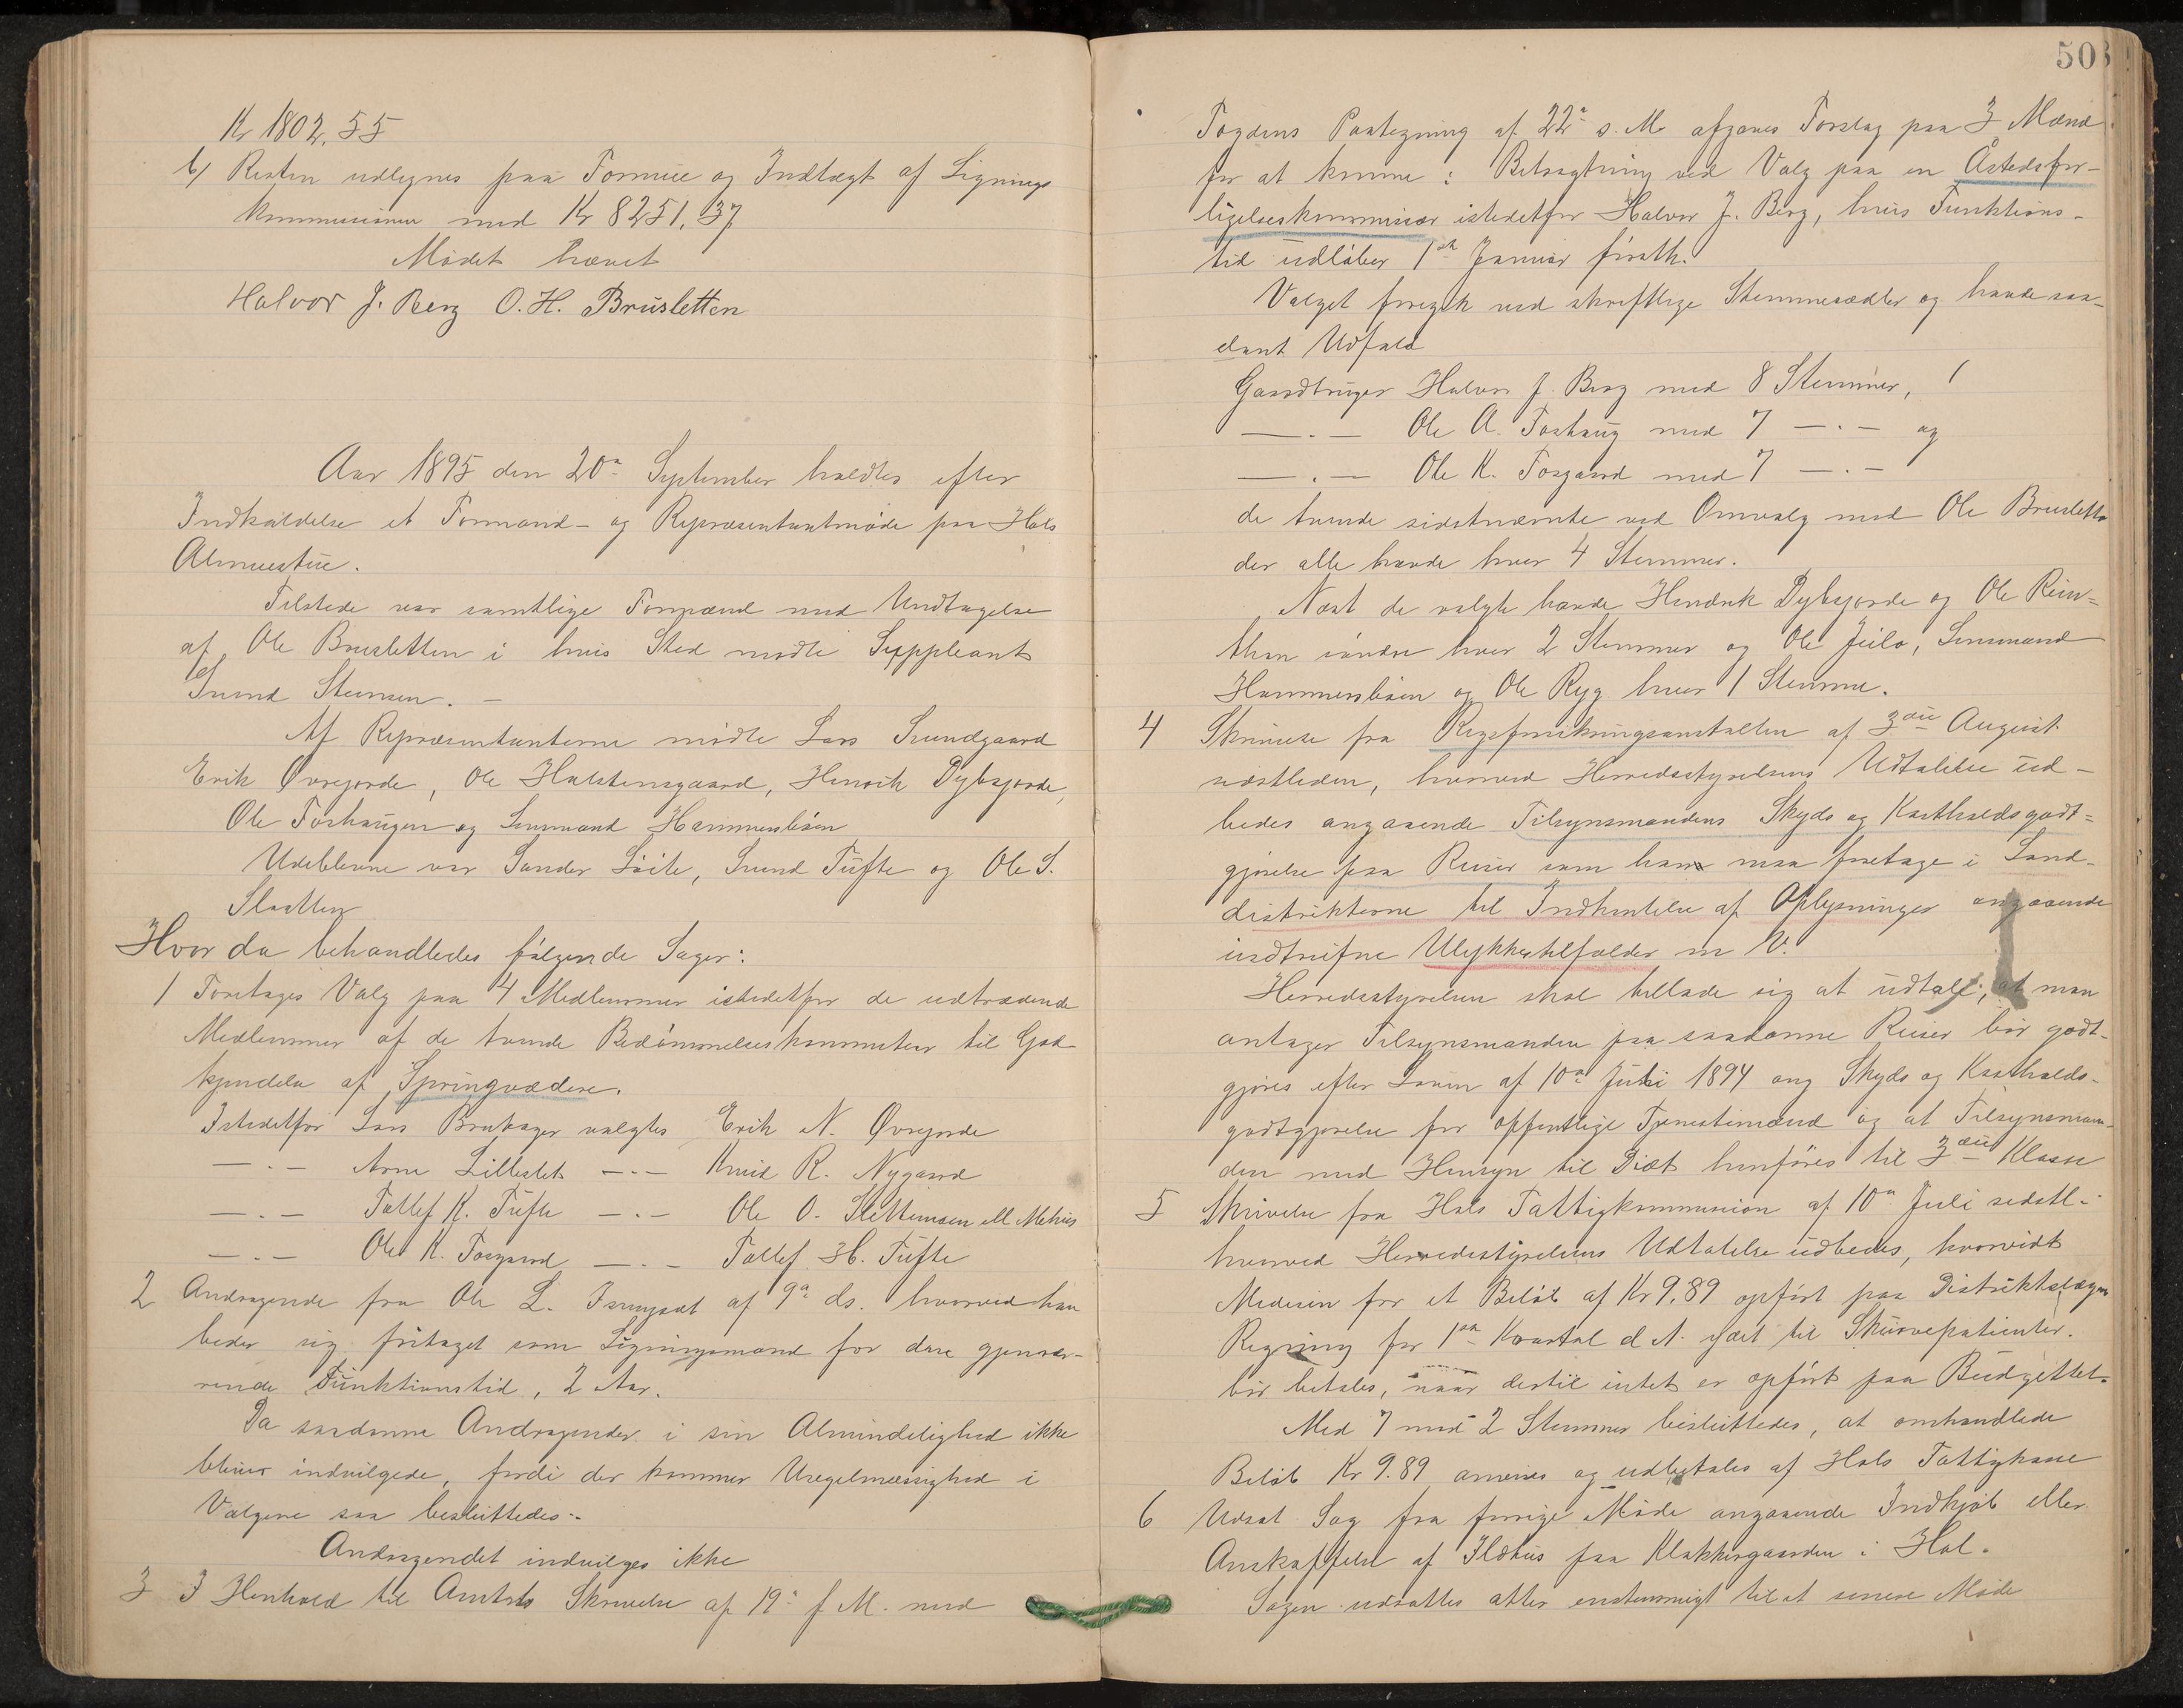 Kr 1802.55
b/ Resten udlignes paa Formue og Indtægt af Lignings
kommissionen med Kr 8251.37
Mødet hævet
Halvor J. Berg O. H. Brusletten
Aar 1895 den 20de September holdtes efter
Indkaldelse et Formand- og Repræsentantmøde paa Hols
Almuestue.
Tilstede var samtlige Formænd med Undtagelse
af Ole Brusletten i hvis Sted mødte Suppleant
Svend Steinsen. –
Af Repræsentanterne mødte Lars Sundgaard
Erik Øvrejorde, Ole Holstensgaard, Henrik Dybsjorde,
Ole Foshaugen og Lensmand Hammersbøen
Udeblevne var Sander Løite, Svend Tufte og Ole S.
Slaatten
Hvor da behandledes følgende Sager:
1 Foretages Valg paa 4 Medlemmer istedetfor de udtrædende
Medlemmer af de tvende Bedømmelseskommiteer til God
kjendelse af Springvædere.
Istedetfor Lars Brataker valgtes Erik N. Øvrejorde
—.— Arne Lilleslet —.— Knud R. Nygaard
—.— Tollef K. Tufte —.— Ole O. Slettemoen ell Mehus
—.— Ole K. Torgaard —.— Tollef H. Tufte
2 Andragende fra Ole L. af 9de ds. hvorved han
beder sig fritaget som Ligningsmand for den gjenvæ-
rende Funktionstid, 2 Aar.
Da saadanne Andragender i sin Almindelighed ikke
bliver indvilgede, fordi der kommer Uregelmæssighed i
Valgene saa besluttedes:
Andragendet indvilges ikke
3 I Henhold til Amtets Skrivelse af 19de f M. med
503
Fogdens Paategning af 22de s. M. afgaves Forslag paa 3 Mænd
for at komme i Betragtning ved Valg paa en Åstedsfor-
ligelseskommisær istedetfor Halvor J. Berg, hvis Funktions-
tid udløber 1ste Januar førstk.
Valget foregik ved skriftlige Stemmesedler og havde saa-
dant Udfald
Gaardbruger Halvor J. Berg med 8 Stemmer,
—.— Ole A. Foshaug med 7 —.— og
—.— Ole K. Torgaard med 7 —.—
de tvende sidstnævnte ved Omvalg med Ole Brusletten
der alle havde hver 4 Stemmer.
Næst de valgte havde Henrik Dybsjorde og Ole Rein-
ton søndre hver 2 Stemmer og Ole Jeilo, Lensmand
Hammersbøen og Ole Ryg hver 1 Stemme.
4 Skrivelse fra Rigsforsikringsanstalten af 3die August
sidstleden, hvorved Herredsstyrelsens Udtalelse ud-
bedes angaaende Tilsynsmandens Skyds og Kostholdsgodt-
gjørelse paa Reiser som han maa foretage i Land-
distrikterne til Indhentelse af Oplysninger angaaende
indtrufne Ulykkestilfælder m V.
Herredsstyrelsen skal tillade sig at udtale, at man
antager Tilsynsmanden paa saadanne Reiser bør godt-
gjøres efter Loven af 10de Juli 1894 ang Skyds og Kostholds-
godtgjørelse for offentlige Tjenestemænd og at Tilsynsman-
den med Hensyn til Diæt henføres til 3die Klasse
5 Skrivelse fra Hols Fattigkommission af 10de Juli sidstl.
hvorved Herredsstyrelsens Udtalelse udbedes, hvorvidt
Medisin for et Beløb af Kr 9.89 opført paa Distriktslægens
Regning for 1ste Kvartal d A. ydet til Skurvepatienter.
bør betales, naar dertil intet er opført paa Budgettet.
Med 7 mod 2 Stemmer besluttedes, at omhandlede
Beløb Kr 9.89 anvises og udbetales af Hols Fattigkasse
6 Udsat Sag fra forrige Møde angaaende Indkjøb eller
Anskaffelse af Ildhus paa Klokkergaarden i Hol.
Sagen udsattes atter enstemmigt til et senere Møde